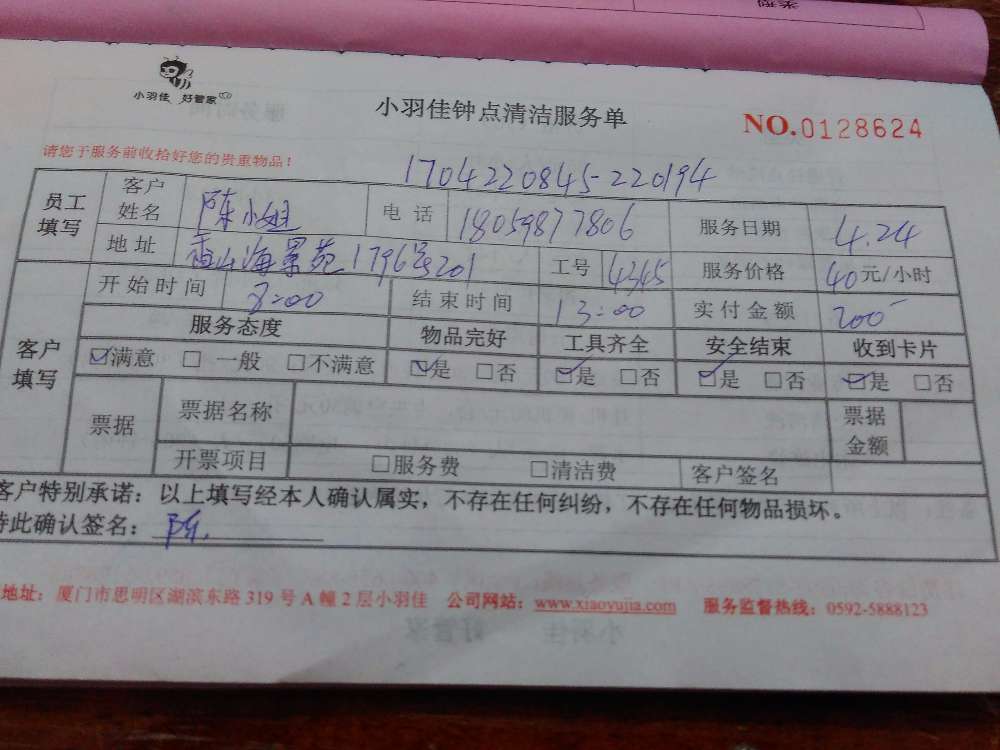 类型
小羽佳 好管家
小羽佳钟点清洁服务单
NO.0128624
请您于服务前收拾好您的贵重物品！
1704220845-220194
员工填写 客户姓名 陈小姐 电话 18059877806 服务日期 4.24
地址 香山海景苑1796号201 工号 4245 服务价格 40元/小时
客户填写 开始时间 8:00 结束时间 13:00 实付金额 200
服务态度 物品完好 工具齐全 安全结束 收到卡片
☑满意 □一般 □不满意 ☑是 □否 ☑是 □否 ☑是 □否 ☑是 □否
票据 票据名称 票据金额
开票项目 □服务费 □清洁费 客户签名
客户特别承诺：以上填写经本人确认属实，不存在任何纠纷，不存在任何物品损坏。
特此确认签名：陈
地址：厦门市思明区湖滨东路 319 号 A 幢 2 层小羽佳 公司网站：www.xiaoyujia.com 服务监督热线：0592-5888123